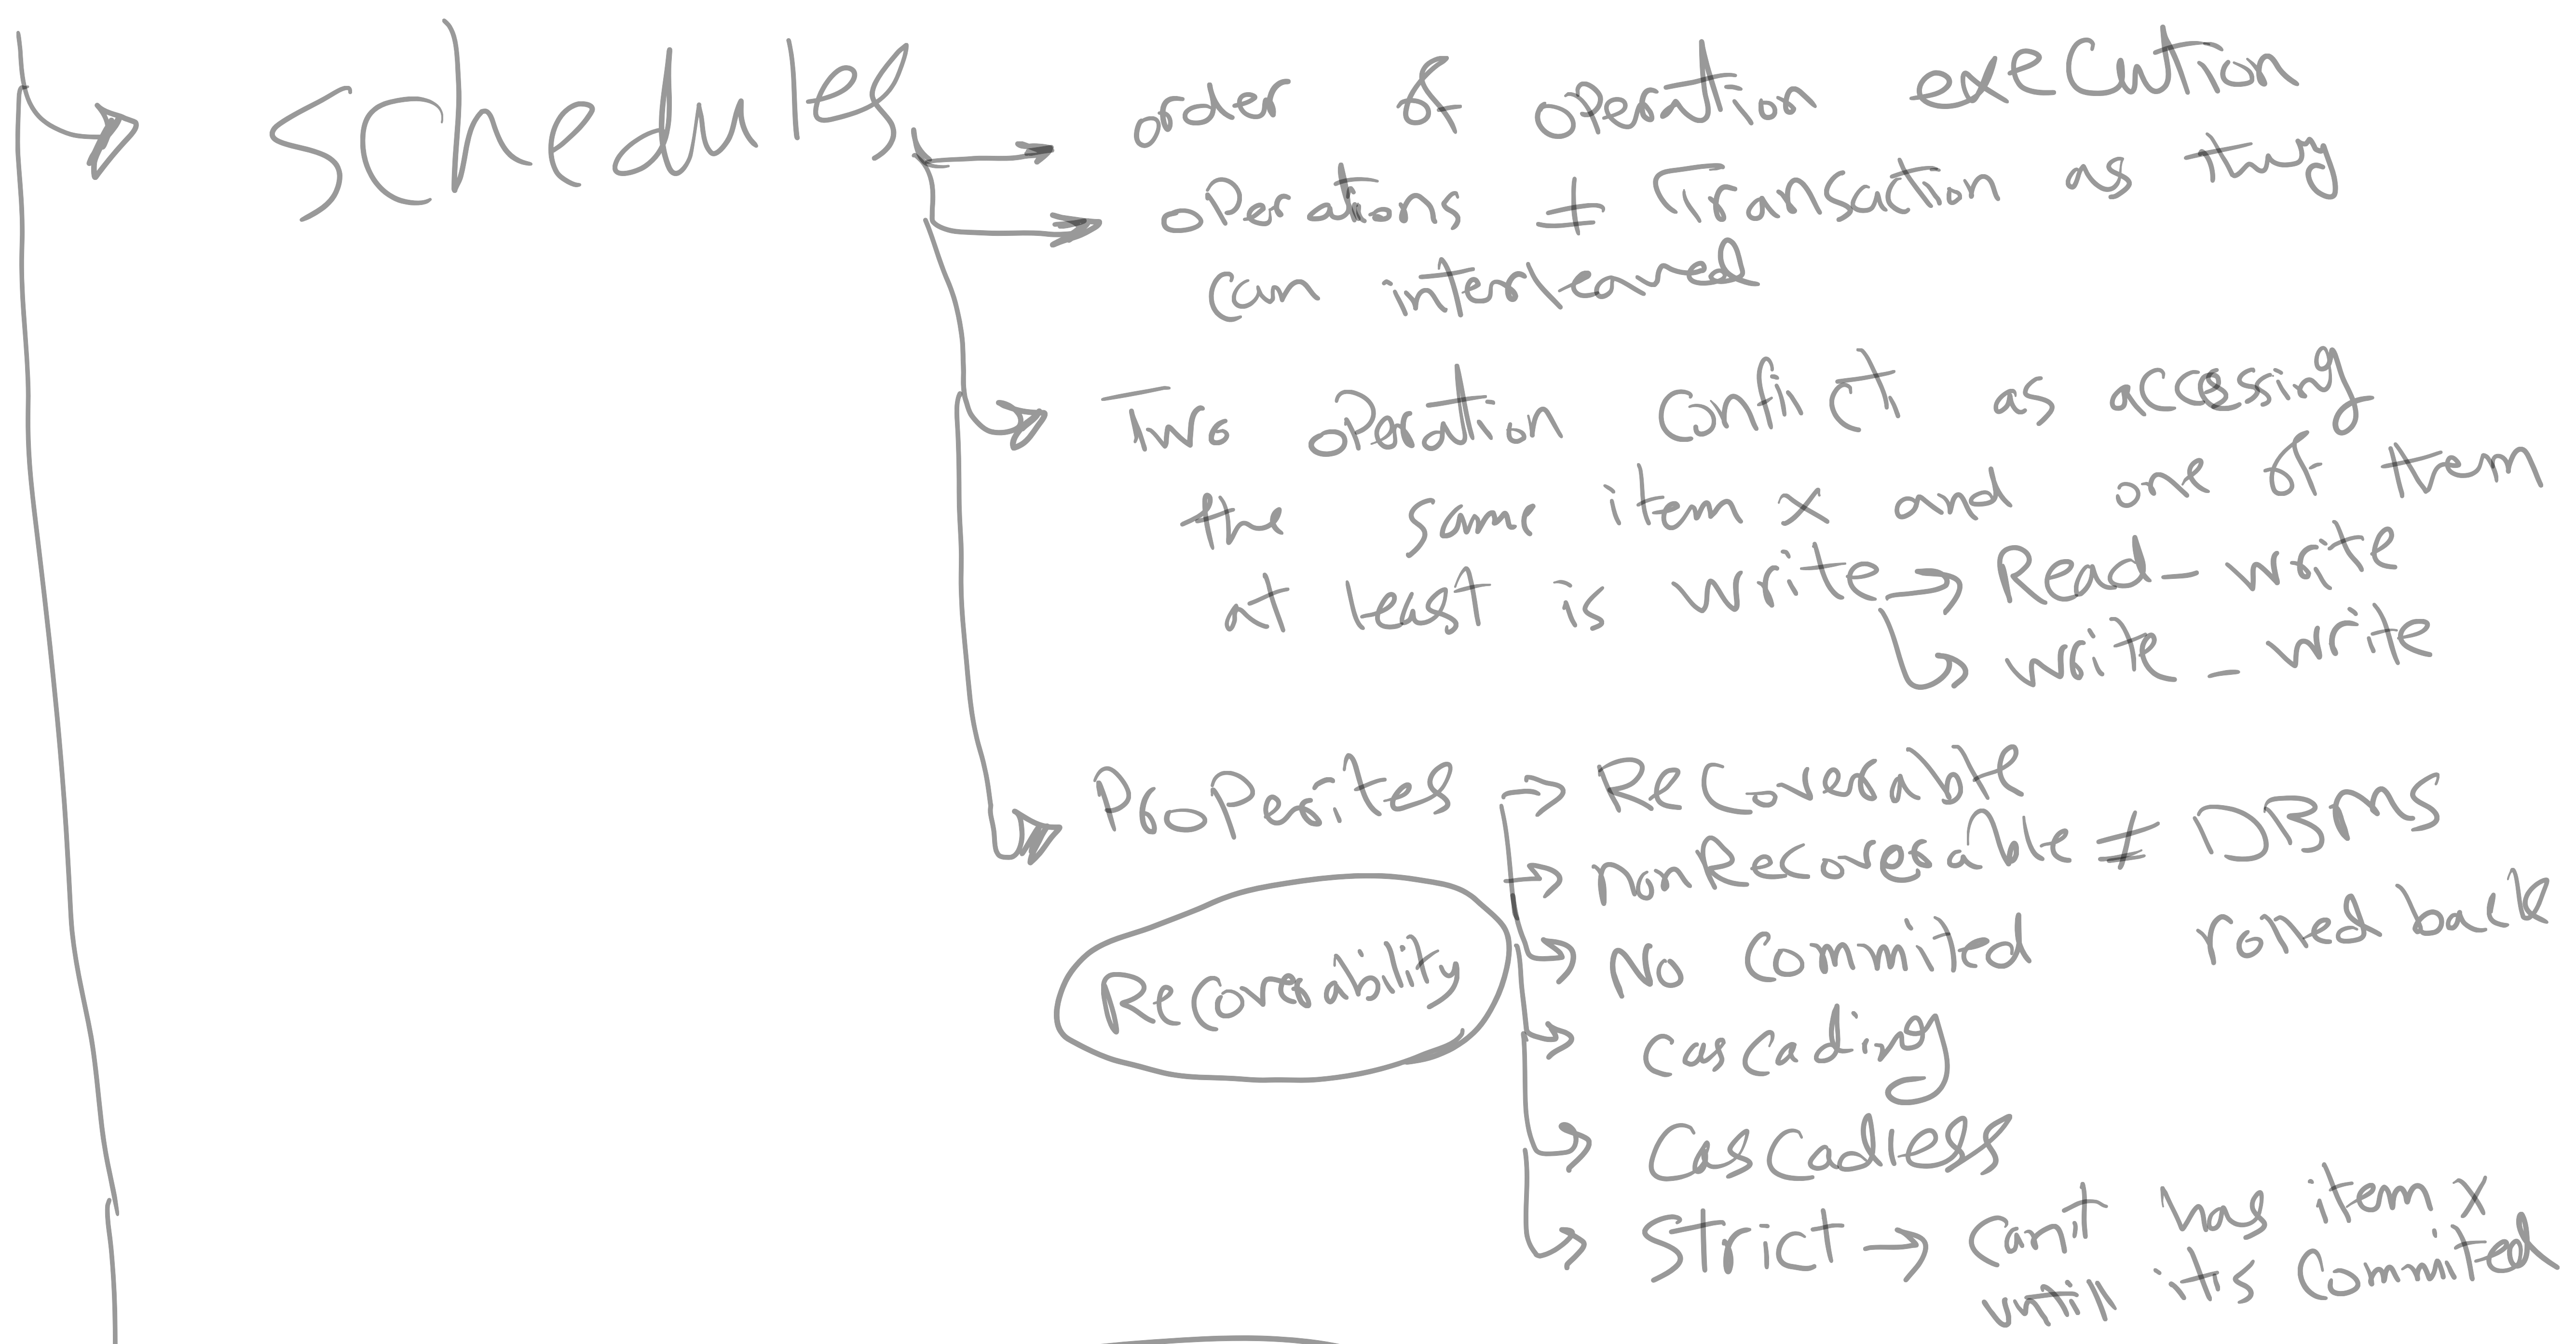 Schedules
order of operation execution
operations ≠ Transaction as they
can interleaved
Two operation conflict as accessing
the same item x and one of them
at least is write → Read - write
→ write - write
Properites → Recoverable
→ nonRecoverable ≠ DBMS
rolled back
→ No Commited
Recoverability
→ cascading
→ Cascadless
→ Strict → can't has item x
until it's Commited